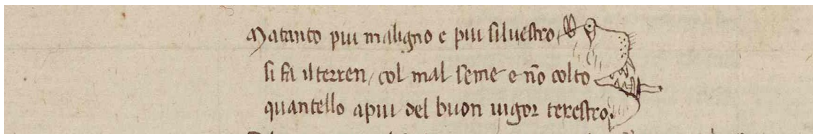 Matanto piu maligno e piu siluestro
si fa il terren col mal seme e nõ colto
quantello apiu del buon uigor terestro